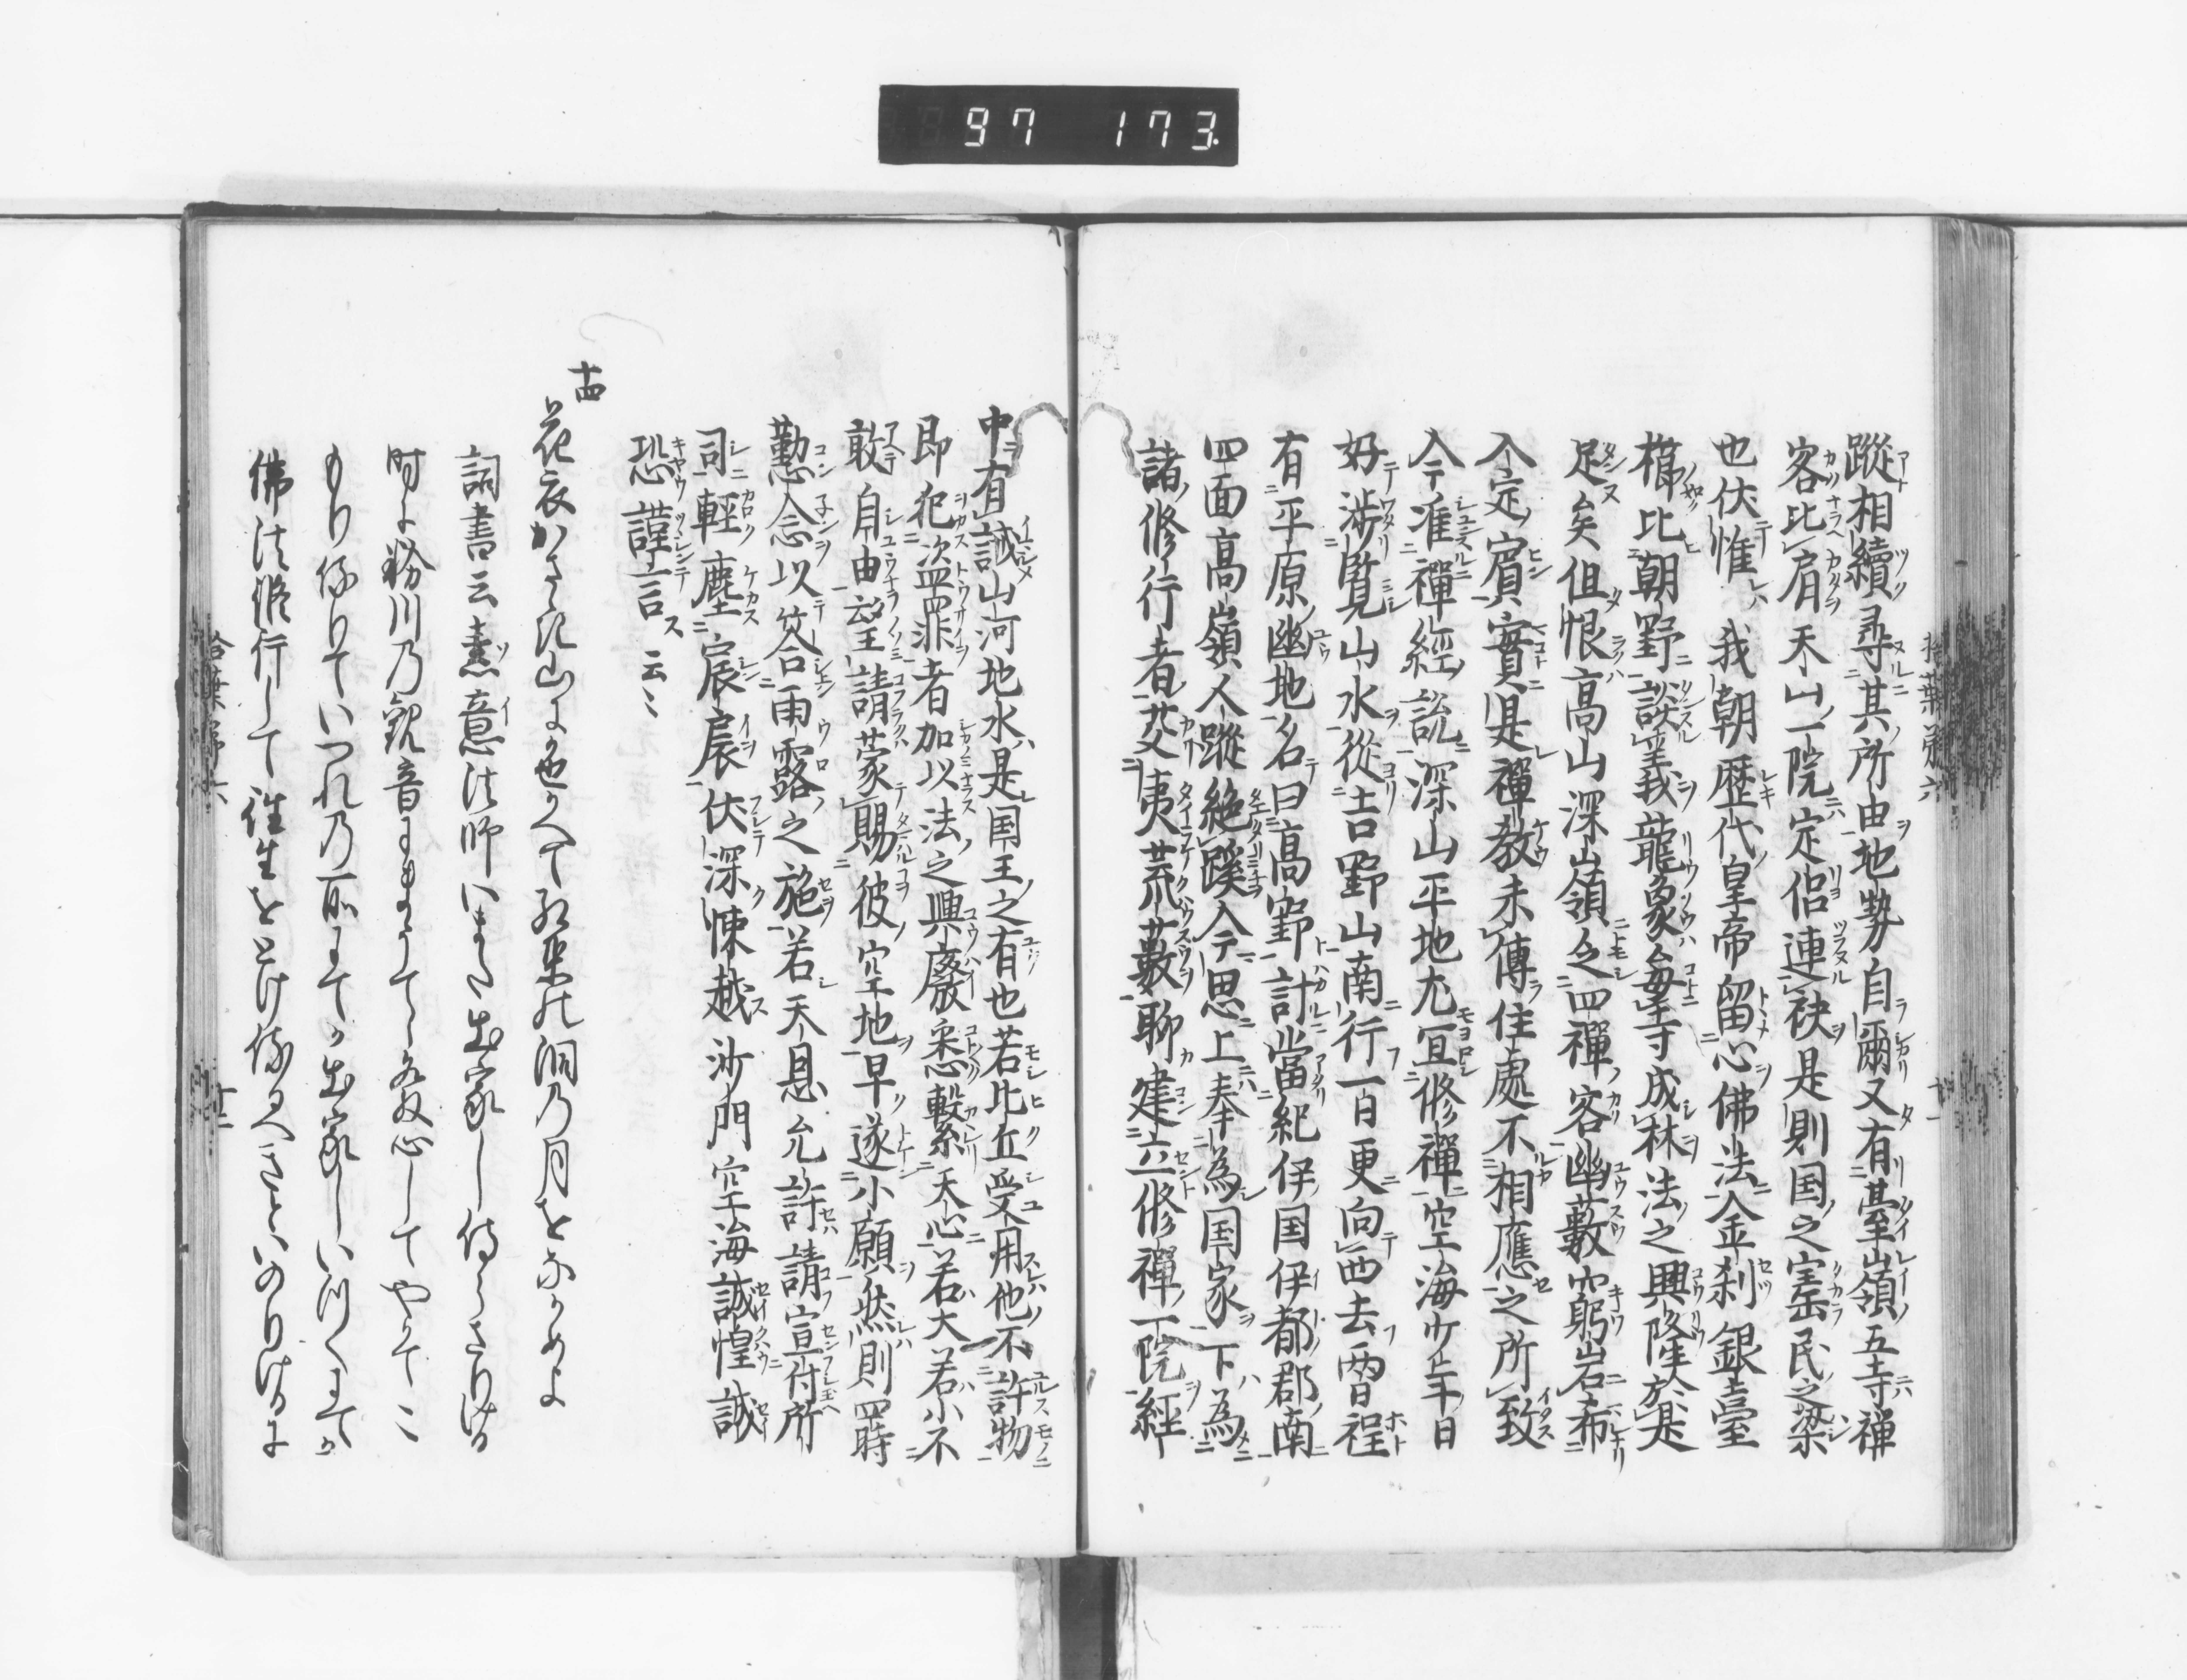 97 173
蹤相續尋其所由地勢自爾又有臺嶺五寺禅
客比肩天山一院定侶連袂是則国之寳民之梁
也伏惟我朝歴代皇帝留心佛法金刹銀臺
櫛比朝野談義龍象毎寺成林法之興隆於是
足矣但恨高山深嶺乏四禪客幽藪窮岩希
入定賓實是禪教未傳住處不相應之所致
今准禪經説深山平地尤冝修禪空海少年日
好渉覧山水從吉野山南行一日更向西去兩日程
有平原幽地名曰高野計當紀伊国伊都郡南
四面高嶺人蹤絶蹊今思上奉為国家下為
諸修行者芟夷荒藪聊建立修禪一院經
中有誡山河地水是国王之有也若比丘受用他不許物
即犯盗罪者加以法之興廢悉繋天心若大若小不
敢自由望請蒙賜彼空地早遂小願然則四時
勤念以答雨露之施若天恩允許請宣付所
司輕塵宸扆伏深悚越沙門空海誠惶誠
恐謹言 云々
十四
花衣かさきの山に色かへて紅葉の洞の月をなかめよ
詞書云素意法師いまた出家し侍らさりける
時よ粉川の観音にまうてゝ発心してやかてこ
もり侍りていつれの所にてか出家しいつくにてか
佛法修行して往生をとけ侍るへきといのりけるに
拾葉第六 十一
拾葉第六 十二